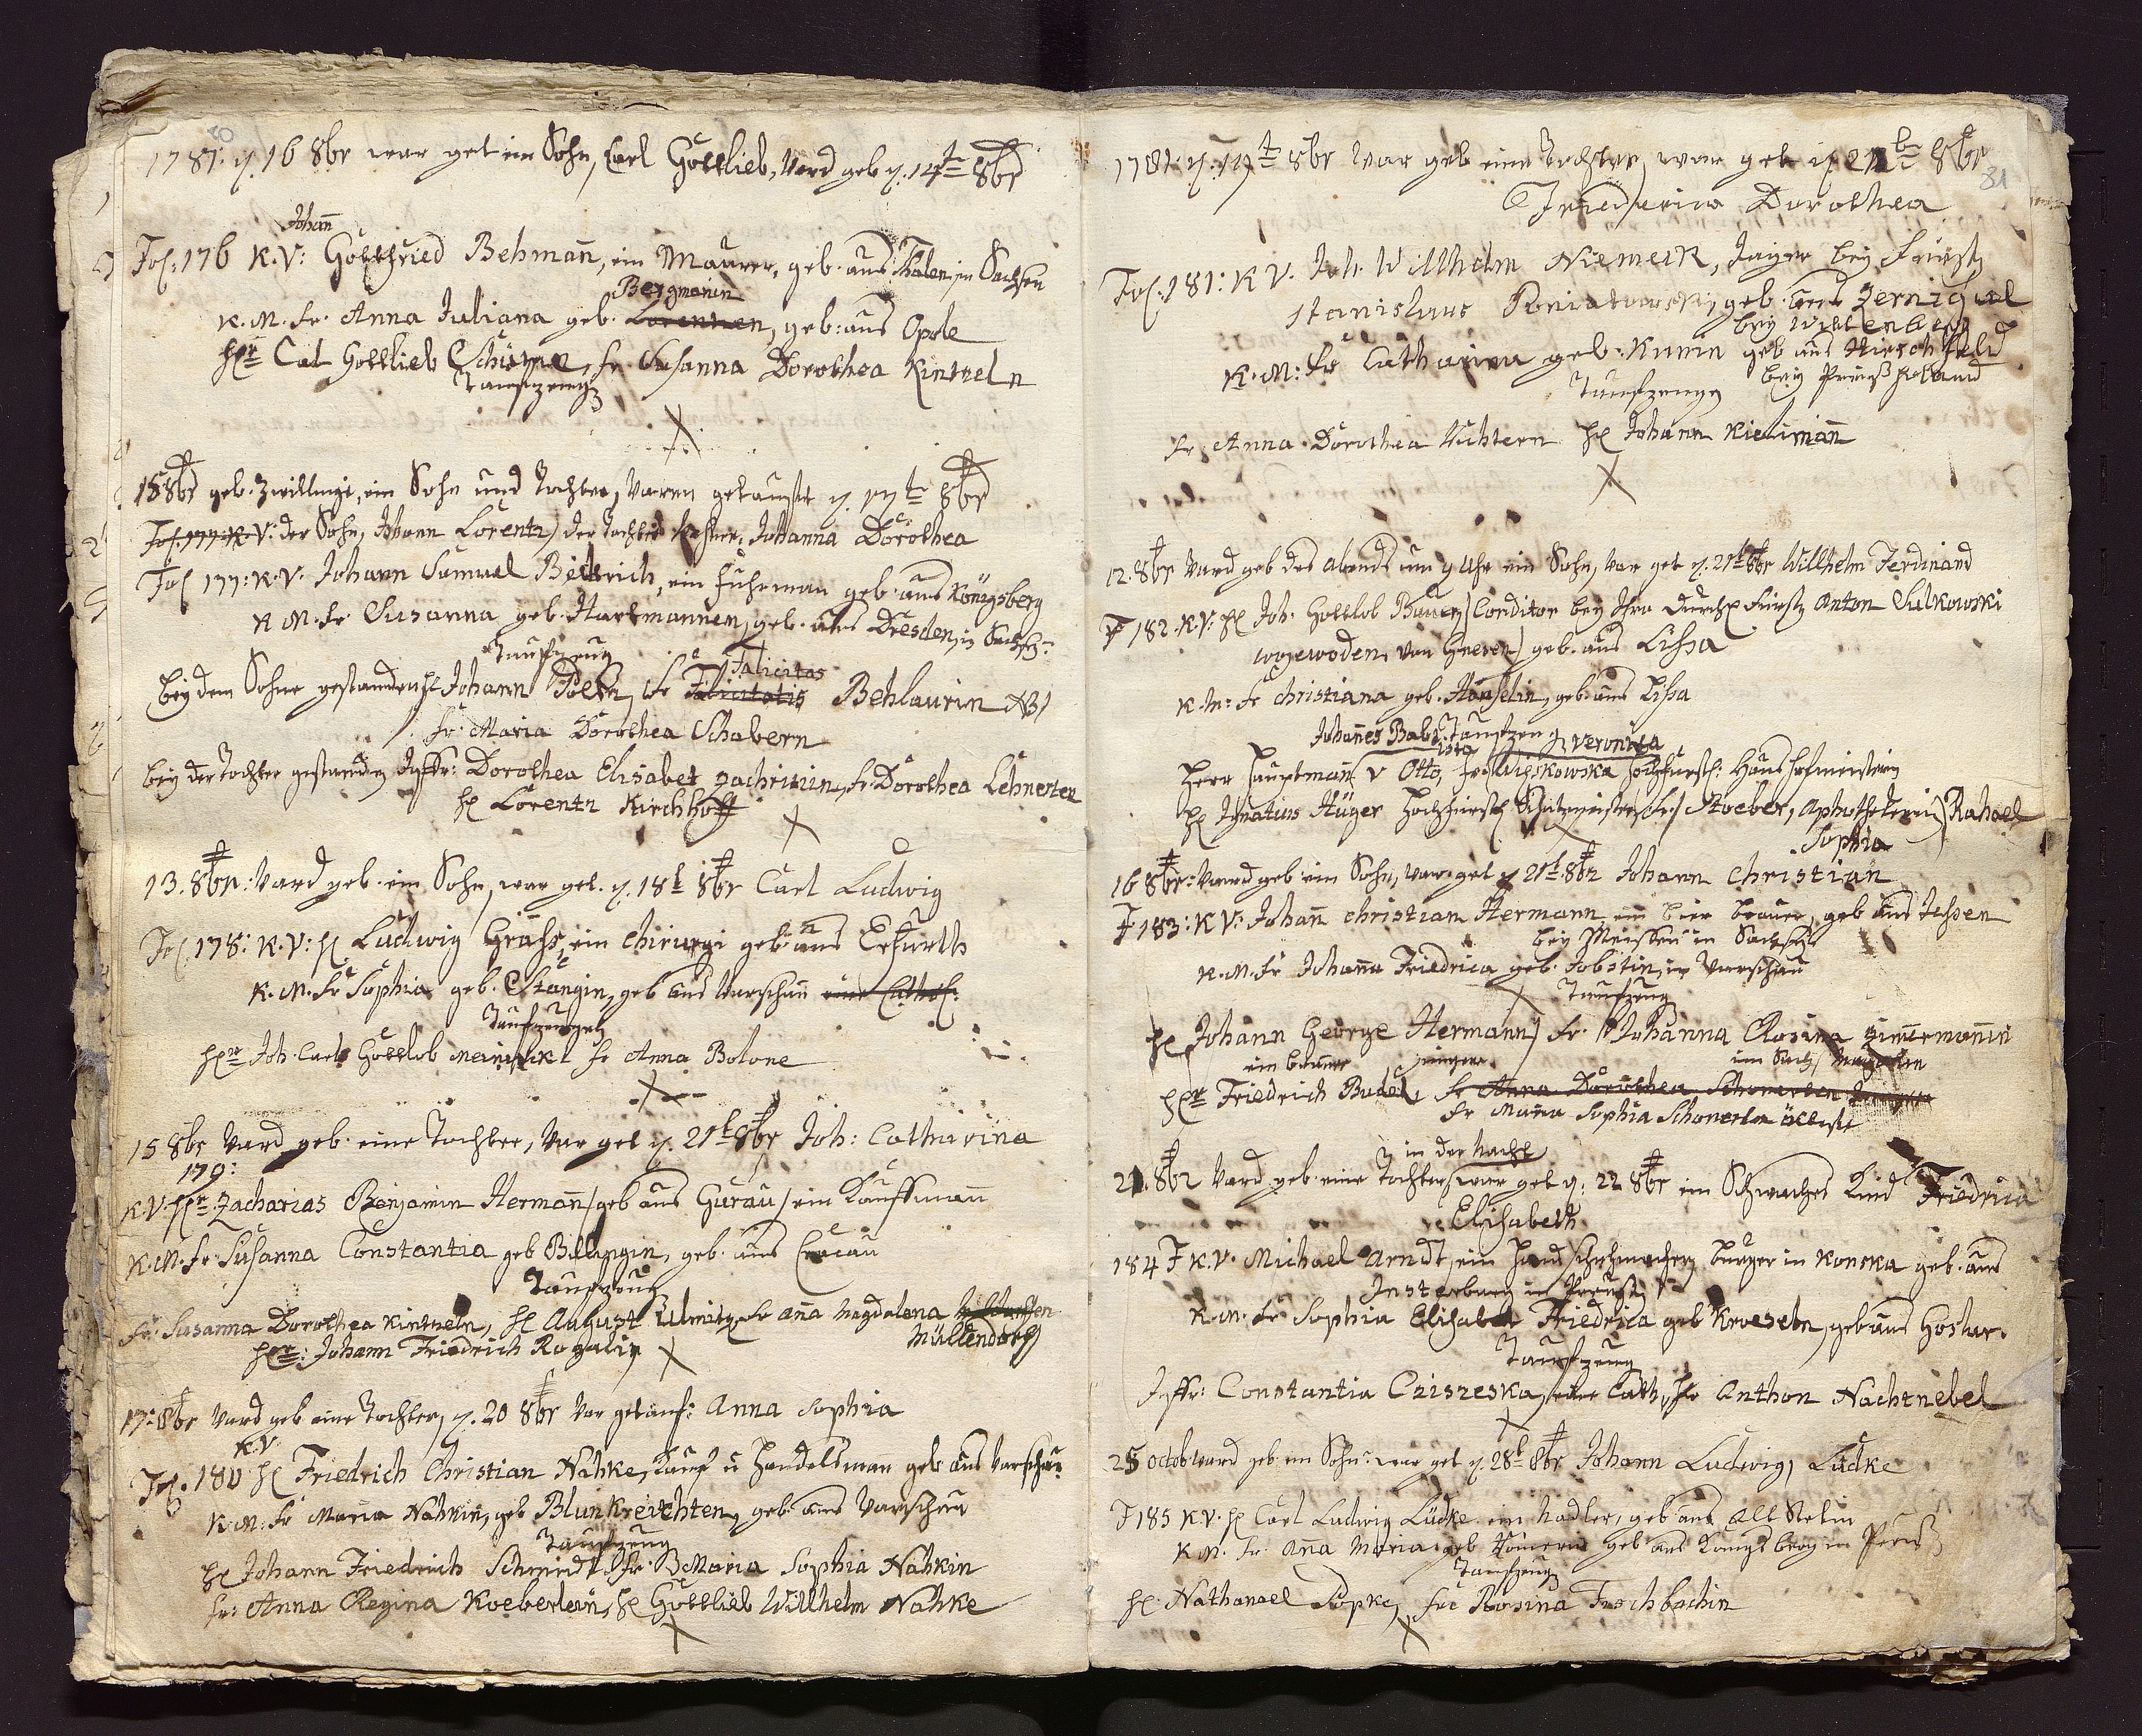 80
1781: d. 16 8br war get ein Sohn, Carl Gottlieb, Vard geb d. 14t 8br
Johañ
Fol: 176 K. V: Gottfried Behmañ, ein Maurer, geb. aus Thalen, in Sachsen
Bergmanin
K. M. Fr. Anna Juliana geb. Lorentzen, geb: aus Opole
Hr Carl Gottlieb Fr Susanna Dorothea Kintzeln
Taufzeug
15 8br geb. Zwillinge, ein Sohn und Tochter, Varen getauft d. 17t 8br
Fol. 177: K. V: der Sohn, Johann Lorentz, der Tochter Johanna Dorothea
Fol 177: K. V. Johann Samuel ein Fuhrman geb. aus Königsberg
K M. Fr Susanna geb. Hartmannen, geb. aus Dresden, in
Taufzeug
Falicitas
bey dem Sohne gestanden H Johann Fr Felicitatis Behlaurin NB
Fr. Maria Dorothea Schabern
bey der Tochter gestanden Jgffr: Dorothea Elisabet Fr. Dorothea Lehnerten
H Lorentz Kirchhoff
13. 8br: Vard geb. ein Sohn, war get. d. 18t 8br Carl Ludwig
Fol. 178: K. V: H Ludwig ein Chirurgi geb. aus Erfurth
K. M. Fr Sophia geb. Stangin, geb aus Varschau eine Cathol:
Taufzeugen
Hr Joh. Carl Gottlob Fr Anna Bolone
15 8br Vard geb. eine Tochter, Var get d. 21t 8br Joh: Catharina
179:
K. V. Hr Zacharias Benjamin Hermañ geb aus Gurau ein Kauffmann
K. M. Fr: Susanna Constantia geb geb. aus Cracau
Taufzeug
Fr. Susanna Dorothea Kintzeln, H August Fr Aña Magdalena
Müllendorf
Hr: Johann Friedrich Rogalin
17: 8br Vard geb eine Tochter, d. 20 8br Var getauf: Anna Sophia
K. V.
Fol. 180 H Friedrich Christian Nahke, Kauf u Handelsman geb aus Varschau
K. M: Fr Maria Nahkin, geb Blunkreichten, geb. aus Varschau
Taufzeug
H Johann Friedrich Schmidt Fr. Maria Sophia Nahkin
Fr: Anna Regina Koeberlein, H Gottlieb Willhelm Nahke
81
1781. d. 19t 8br Var geb eine Tochter, war get d. 21 8br
Friederica Dorothea
Fol: 181: K V. Joh. Willhelm Niemeck, Jäger bey Fürst
Stanislaus Poniatowski, geb. aus
bey Wittenberg
K. M: Fr Catharina geb. Kunin geb aus Hirschfeld
bey Preuß Holand
Taufzeug
Fr. Anna Dorothea H Johann Kielmañ
12. 8br Vard geb des abends um 9 Uhr ein Sohn, Var get d. 21t 8br Willhelm Ferdinand
F 182. K. V: H Joh. Gottlob Conditor bey Ihro Durchl Fürst Anton Sulkowski
woyewoden von Gnesen, geb. aus Lissa
K. M: Fr Christiana geb. geb. aus Lissa
Johañes Bab
tista Taufzeug Veronica
Herr Hauptmañ v Otto, Fr Wieskowska Hochfürstl: Haushofmeisterin
H Ignatius Hochfürstl Fr Stoeber, Aphothekerin Rahael
Sophia
16 8br: Vard geb ein Sohn, war get d 21t 8br Johann Christian
F 183: K V: Johañ Christian Hermann ein bier brauer, geb aus Jessen
bey Meissen in Sachsen
K. M. Fr Johaña Friedrica geb. Jobstin, in Varschau
Taufzeug
H Johann George Hermann Fr. Johanna Rosina Zimermañin
ein brauer jüngere
Hr Friedrich Budel, Fr Anna Dorothea Schonerten
Fr Maria Sophia Schonertin
in der Nacht
21. 8br Vard geb. eine Tochter, war get d. 22 8br ein Schwaches Kind Friedrica
Elisabeth
184 F K. V. Michael Arndt, ein Handschuhmacher, Burger in Konska geb. aus
Insterburg in Preuß
K. M. Fr Sophia Elisabet Friedrica geb geb aus Goslar.
Taufzeug
Jgffr: Constantia Cziszeska, eine Cath, H Anthon Nachtnebel
25 octob Vard geb ein Sohn: war get d. 28t 8br Johann Ludwig, Lüdke
F 185 K. V. H Carl Ludwig Lüdke ein Nadler, geb aus Alt Stetin
K M. Fr. Aña Maria geb geb aus Königsberg in Preuß
Taufzeug
H. Nathanael Popke, Fr: Rosina Fischbachin